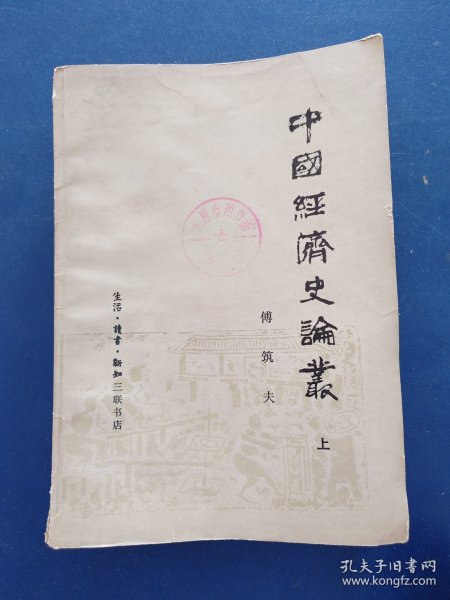 中國經濟史論叢
上
傅筑夫
生活·讀書·新知三联书店
孔夫子旧书网
www.kongfz.com